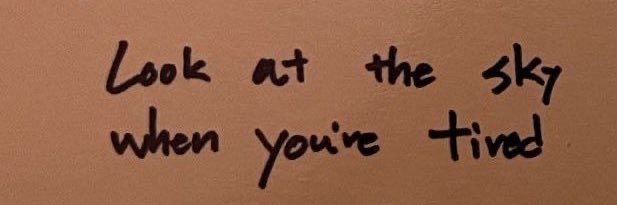 Look at the sky
when you're tired